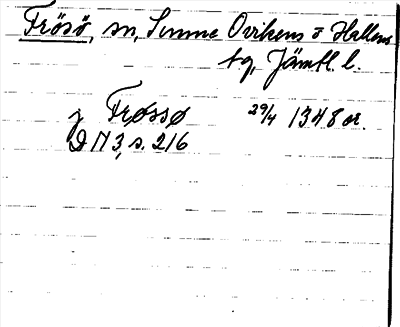 Frösö, sn, Sunne Ovikens o Hallens
tg, Jämtl. l.
j Frøssø 29/4 1348 or.
D N 3, s. 216